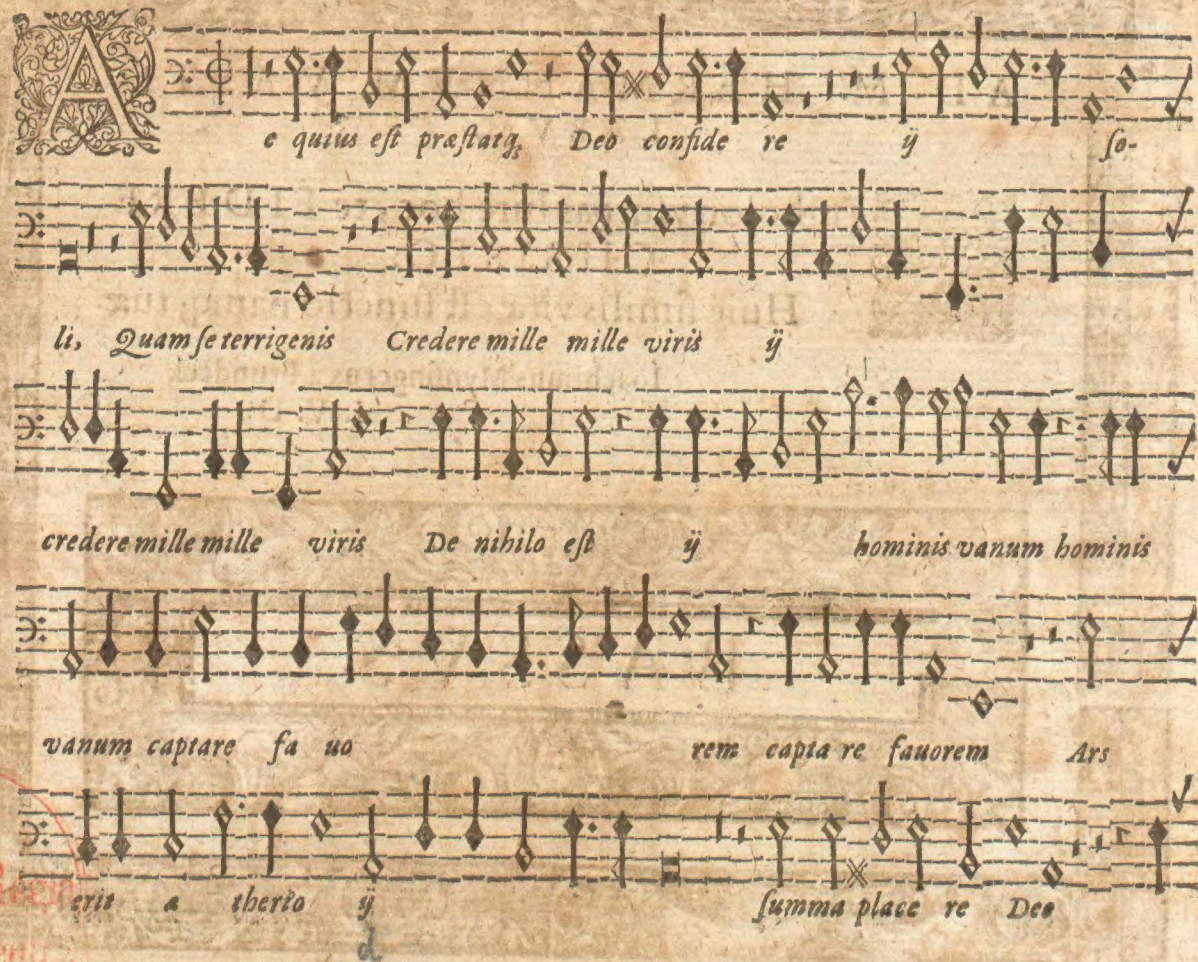 A e quius eſt præſtatq; Deo confide re ij ſo-
li, Quam ſe terrigenis Credere mille mille viris ij
credere mille mille viris De nihilo eſt ij hominis vanum hominis
vanum captare fa uo rem capta re fauorem Ars
erit æ therio ij ſumma place re Deo
d